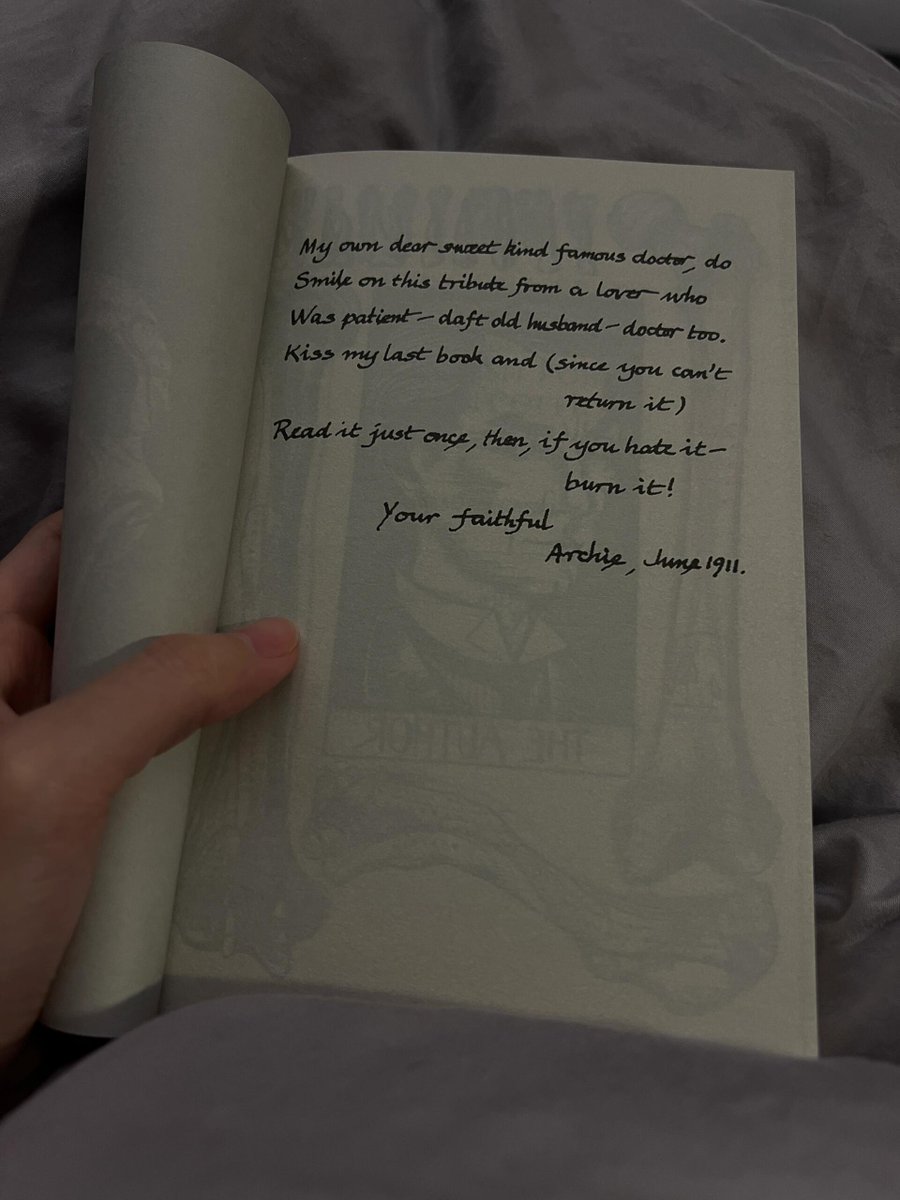 My own dear sweet kind famous doctor, do
Smile on this tribute from a lover who
Was patient — daft old husband — doctor too.
Kiss my last book and (since you can't
return it)
Read it just once, then, if you hate it —
burn it!
Your faithful
Archie, June 1911.
THE AUTHOR